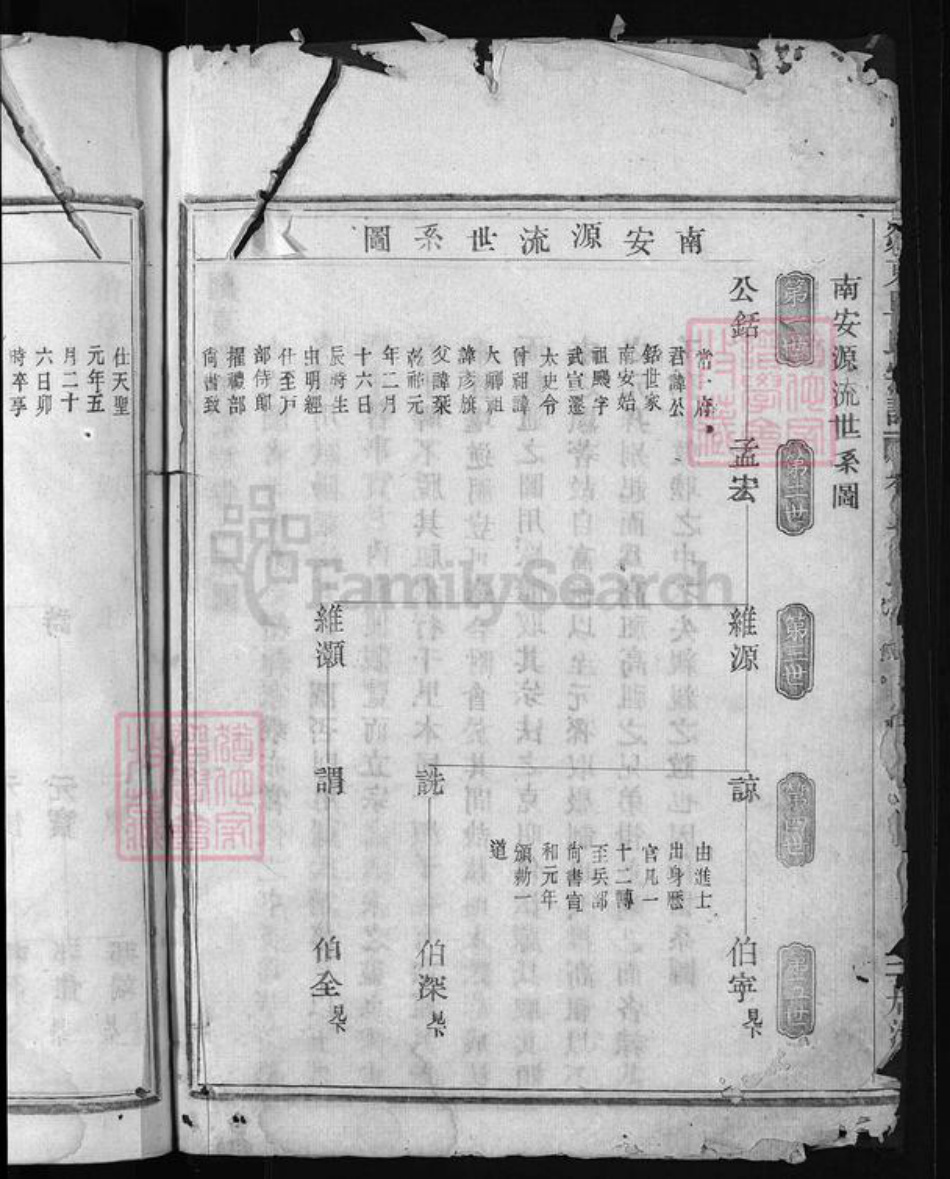 南安源流世系圖
南安源流世系圖
第一世
第二世
第三世
第四世
第五世
公銛
常一府
君諱公
銛世家
南安始
祖颺字
武宣遷
太史令
曾祖諱
大卿祖
諱彥旗
父諱棻
乾祐元
年二月
十六日
辰時生
由明經
仕至戸
部侍郎
擢禮部
尚書致
仕天聖
元年五
月二十
六日卯
時卒享
孟宏
維源
維灝
諒
由進士
出身歷
官凡一
十二轉
至兵部
尚書宣
和元年
頒勅一
道
詵
謂
伯寧 見下
伯深 見下
伯全 見下
FamilySearch